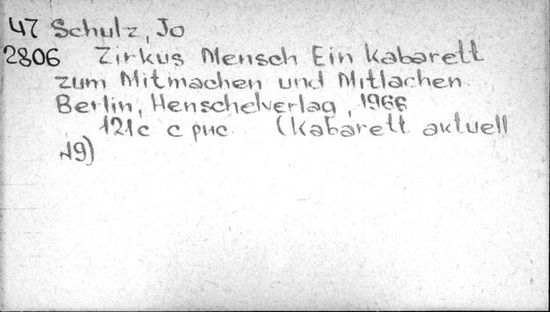 47 Schulz, Jo
2806 Zirkus Mensch Ein Kabarett
zum Mitmachen und Mitlachen.
Berlin, Henschelverlag, 1966
121c с рис. (Kabarett aktuell
19)